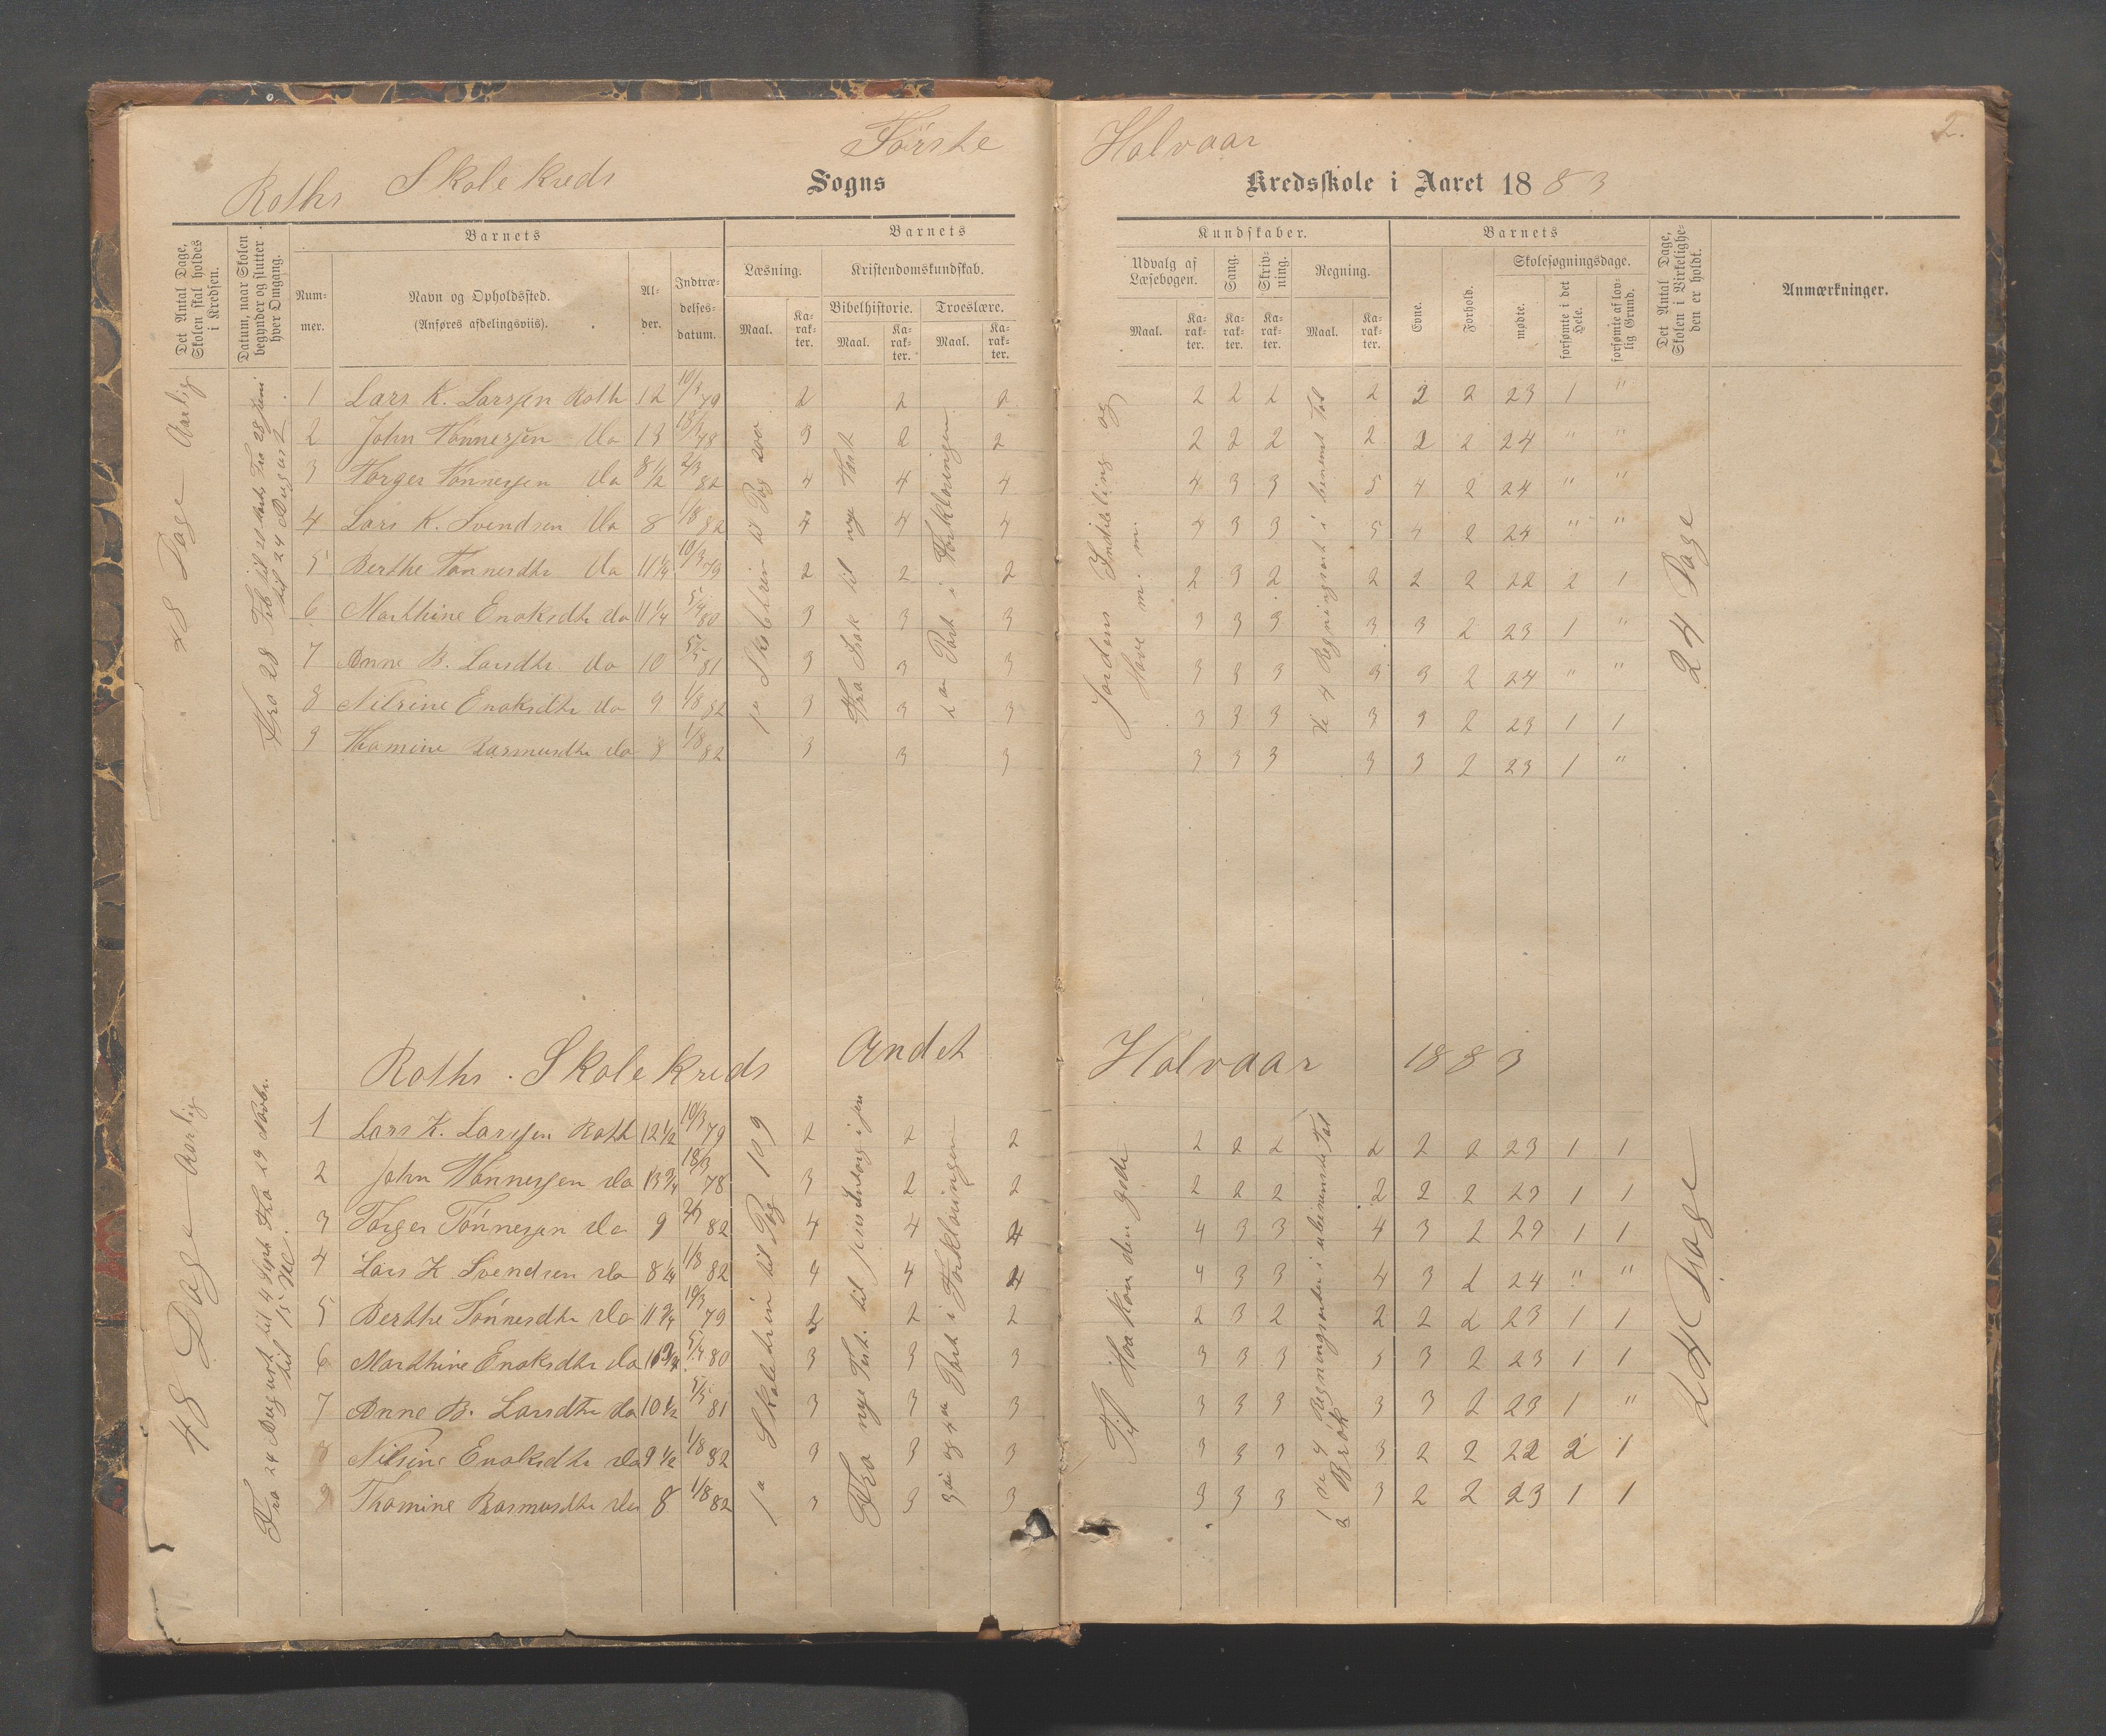 Første Halvaar 2.
Roths Skolekreds Sogns Kredsskole i Aaret 1883
Det Antal Dage, Skolen skal holdes i Kredsen.
Datum, naar Skolen begynder og slutter hver Omgang.
Barnets
Num-mer.
Navn og Opholdssted.
(Anføres afdelingsviis).
Al-der.
Indtræ-delses-datum.
Barnets
Læsning.
Maal.
Ka-rak-ter.
Kristendomskundskab.
Bibelhistorie.
Maal.
Ka-rak-ter.
Troeslære.
Maal.
Ka-rak-ter.
Kundskaber.
Udvalg af Læsebogen.
Maal.
Ka-rak-ter.
Sang.
Ka-rak-ter.
Skriv-ning.
Ka-rak-ter.
Regning.
Maal.
Ka-rak-ter.
Barnets
Evne.
Forhold.
Skolesøgningsdage.
mødte.
forsømte i det Hele.
forsømte af lov-lig Grund.
Det Antal Dage, Skolen i Virkelighe-den er holdt.
Anmærkninger.
48 Dage Aarlig
til 24 August
1 Lars K. Larssen Roth 12 10/3 79 2 2 2 2 2 2 2 2 2 23 1 "
2 John Tønnessen do 13 18/3 78 3 2 2 2 2 2 2 2 2 24 " "
3 Torger Tønnessen do 8 1/2 2/3 82 4 4 4 4 3 3 5 4 2 24 " "
4 Lars K. Svendsen do 8 1/8 82 4 4 4 4 3 3 5 4 2 24 " "
5 Berthe Tønnesdtr do 11 1/4 10/3 79 2 2 2 2 3 2 2 2 2 22 2 1
6 Marthine Enoksdtr do 11 1/4 5/4 80 3 3 3 3 3 3 3 3 2 23 1 "
7 Anne B. Larsdtr do 10 5/5 81 3 3 3 3 3 3 3 3 2 24 " "
8 Nilsine Enoksdtr do 9 1/8 82 3 3 3 3 3 3 3 3 2 23 1 1
9 Thomine Rasmusdtr do 8 1/8 82 3 3 3 3 3 3 3 3 2 23 1 "
Skoletrin til Pag 200
2den Part i Forklaringen
Jordens Inddeling og
Have m. m.
De 4 Regningsart i benevnt Tal
24 Dage
Roths Skolekreds Andet Halvaar 1883
48 Dage Aarlig
Fra 24 August til 4 Septb Fra 29 Novbr.
til 15 De
1 Lars K. Larssen Roth 12 1/2 10/3 79 2 2 2 2 2 2 2 2 2 23 1 1
2 John Tønnessen do 13 3/4 18/3 78 3 2 2 2 2 2 2 2 2 23 1 1
3 Torger Tønnessen do 9 2/3 82 4 4 4 4 3 3 4 3 2 23 1 1
4 Lars K Svendsen do 8 1/4 1/8 82 4 4 4 4 3 3 4 3 2 24 " "
5 Berthe Tønnesdtr do 11 3/4 10/3 79 2 2 2 2 3 2 2 2 2 23 1 1
6 Marthine Enoksdtr do 11 3/4 5/4 80 3 3 3 3 3 3 3 3 2 23 1 1
7 Anne B. Larsdtr do 10 1/2 5/5 81 3 3 3 3 3 3 3 3 2 23 1 "
8 Nilsine Enoksdtr do 9 1/2 1/8 82 3 3 3 3 3 3 3 2 2 22 2 1
9 Thomine Rasmusdtr do 8 1/8 82 3 3 3 3 3 3 3 2 2 23 1 1
Skoletrin til Pag 109
Fra nye Test. til
Part i Forklaringen
Til Haakon den gode
de 4 Regningsarter i ubenevnte Tal
Brøk
24 Dage